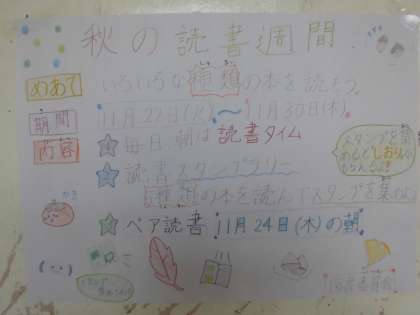 秋の読書週間
めあて
いろいろな種類の本を読もう。
期間
11月22日(火)〜11月30日(水)
内容
毎日 朝は読書タイム
読書スタンプラリー
5種類の本を読んでスタンプを集めよう
スタンプを集
めるとしおりが
もらえるよ!
ペア読書 11月24日(木)の朝
かき
図書委員会